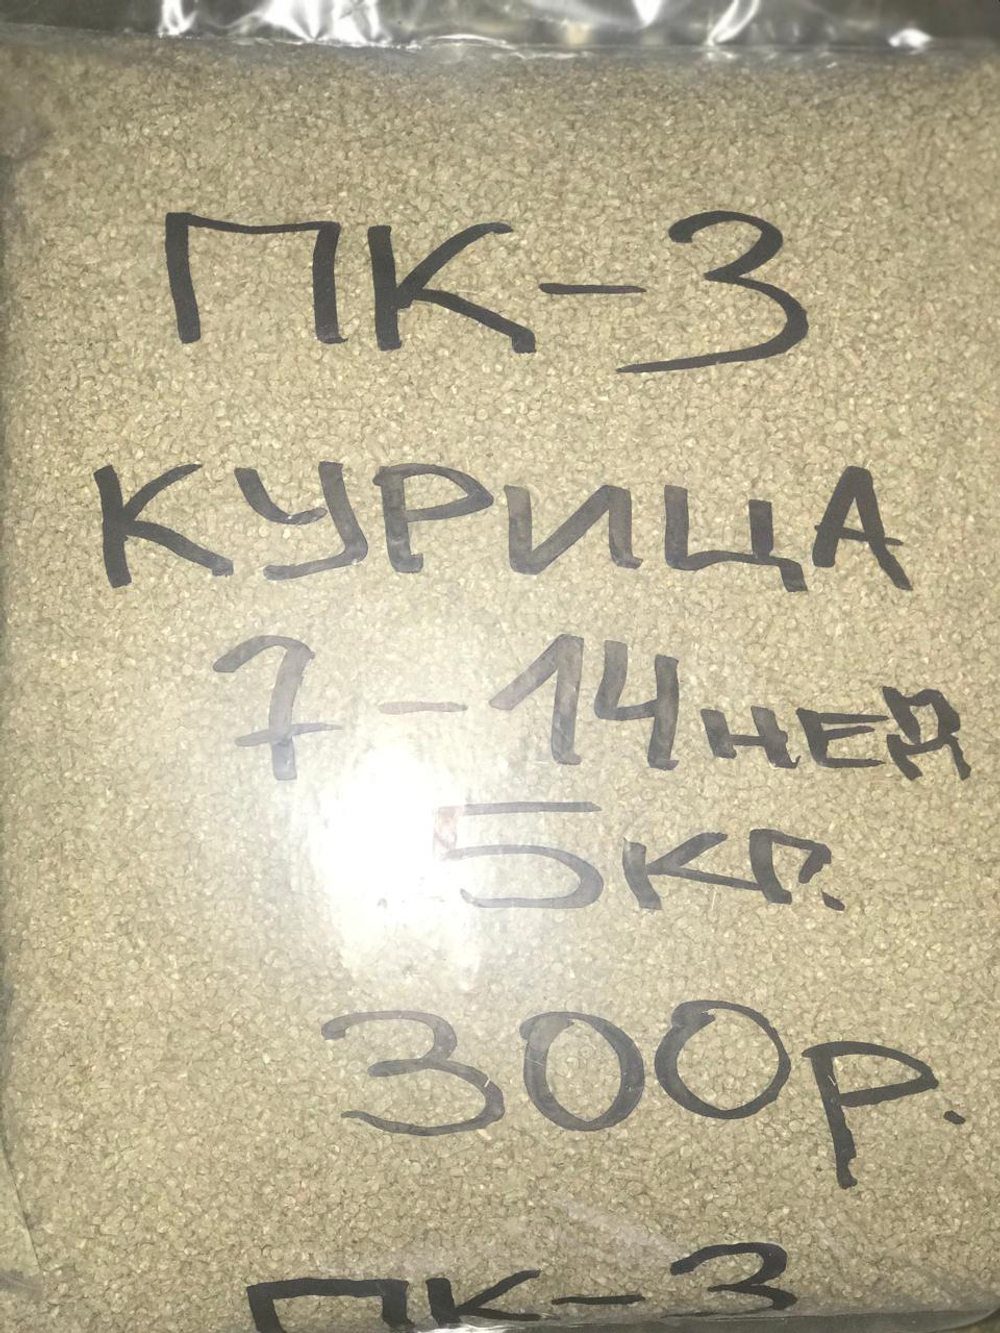 ПК-3
КУРИЦА
7-14 НЕД
5 КГ.
300р.
ПК-3